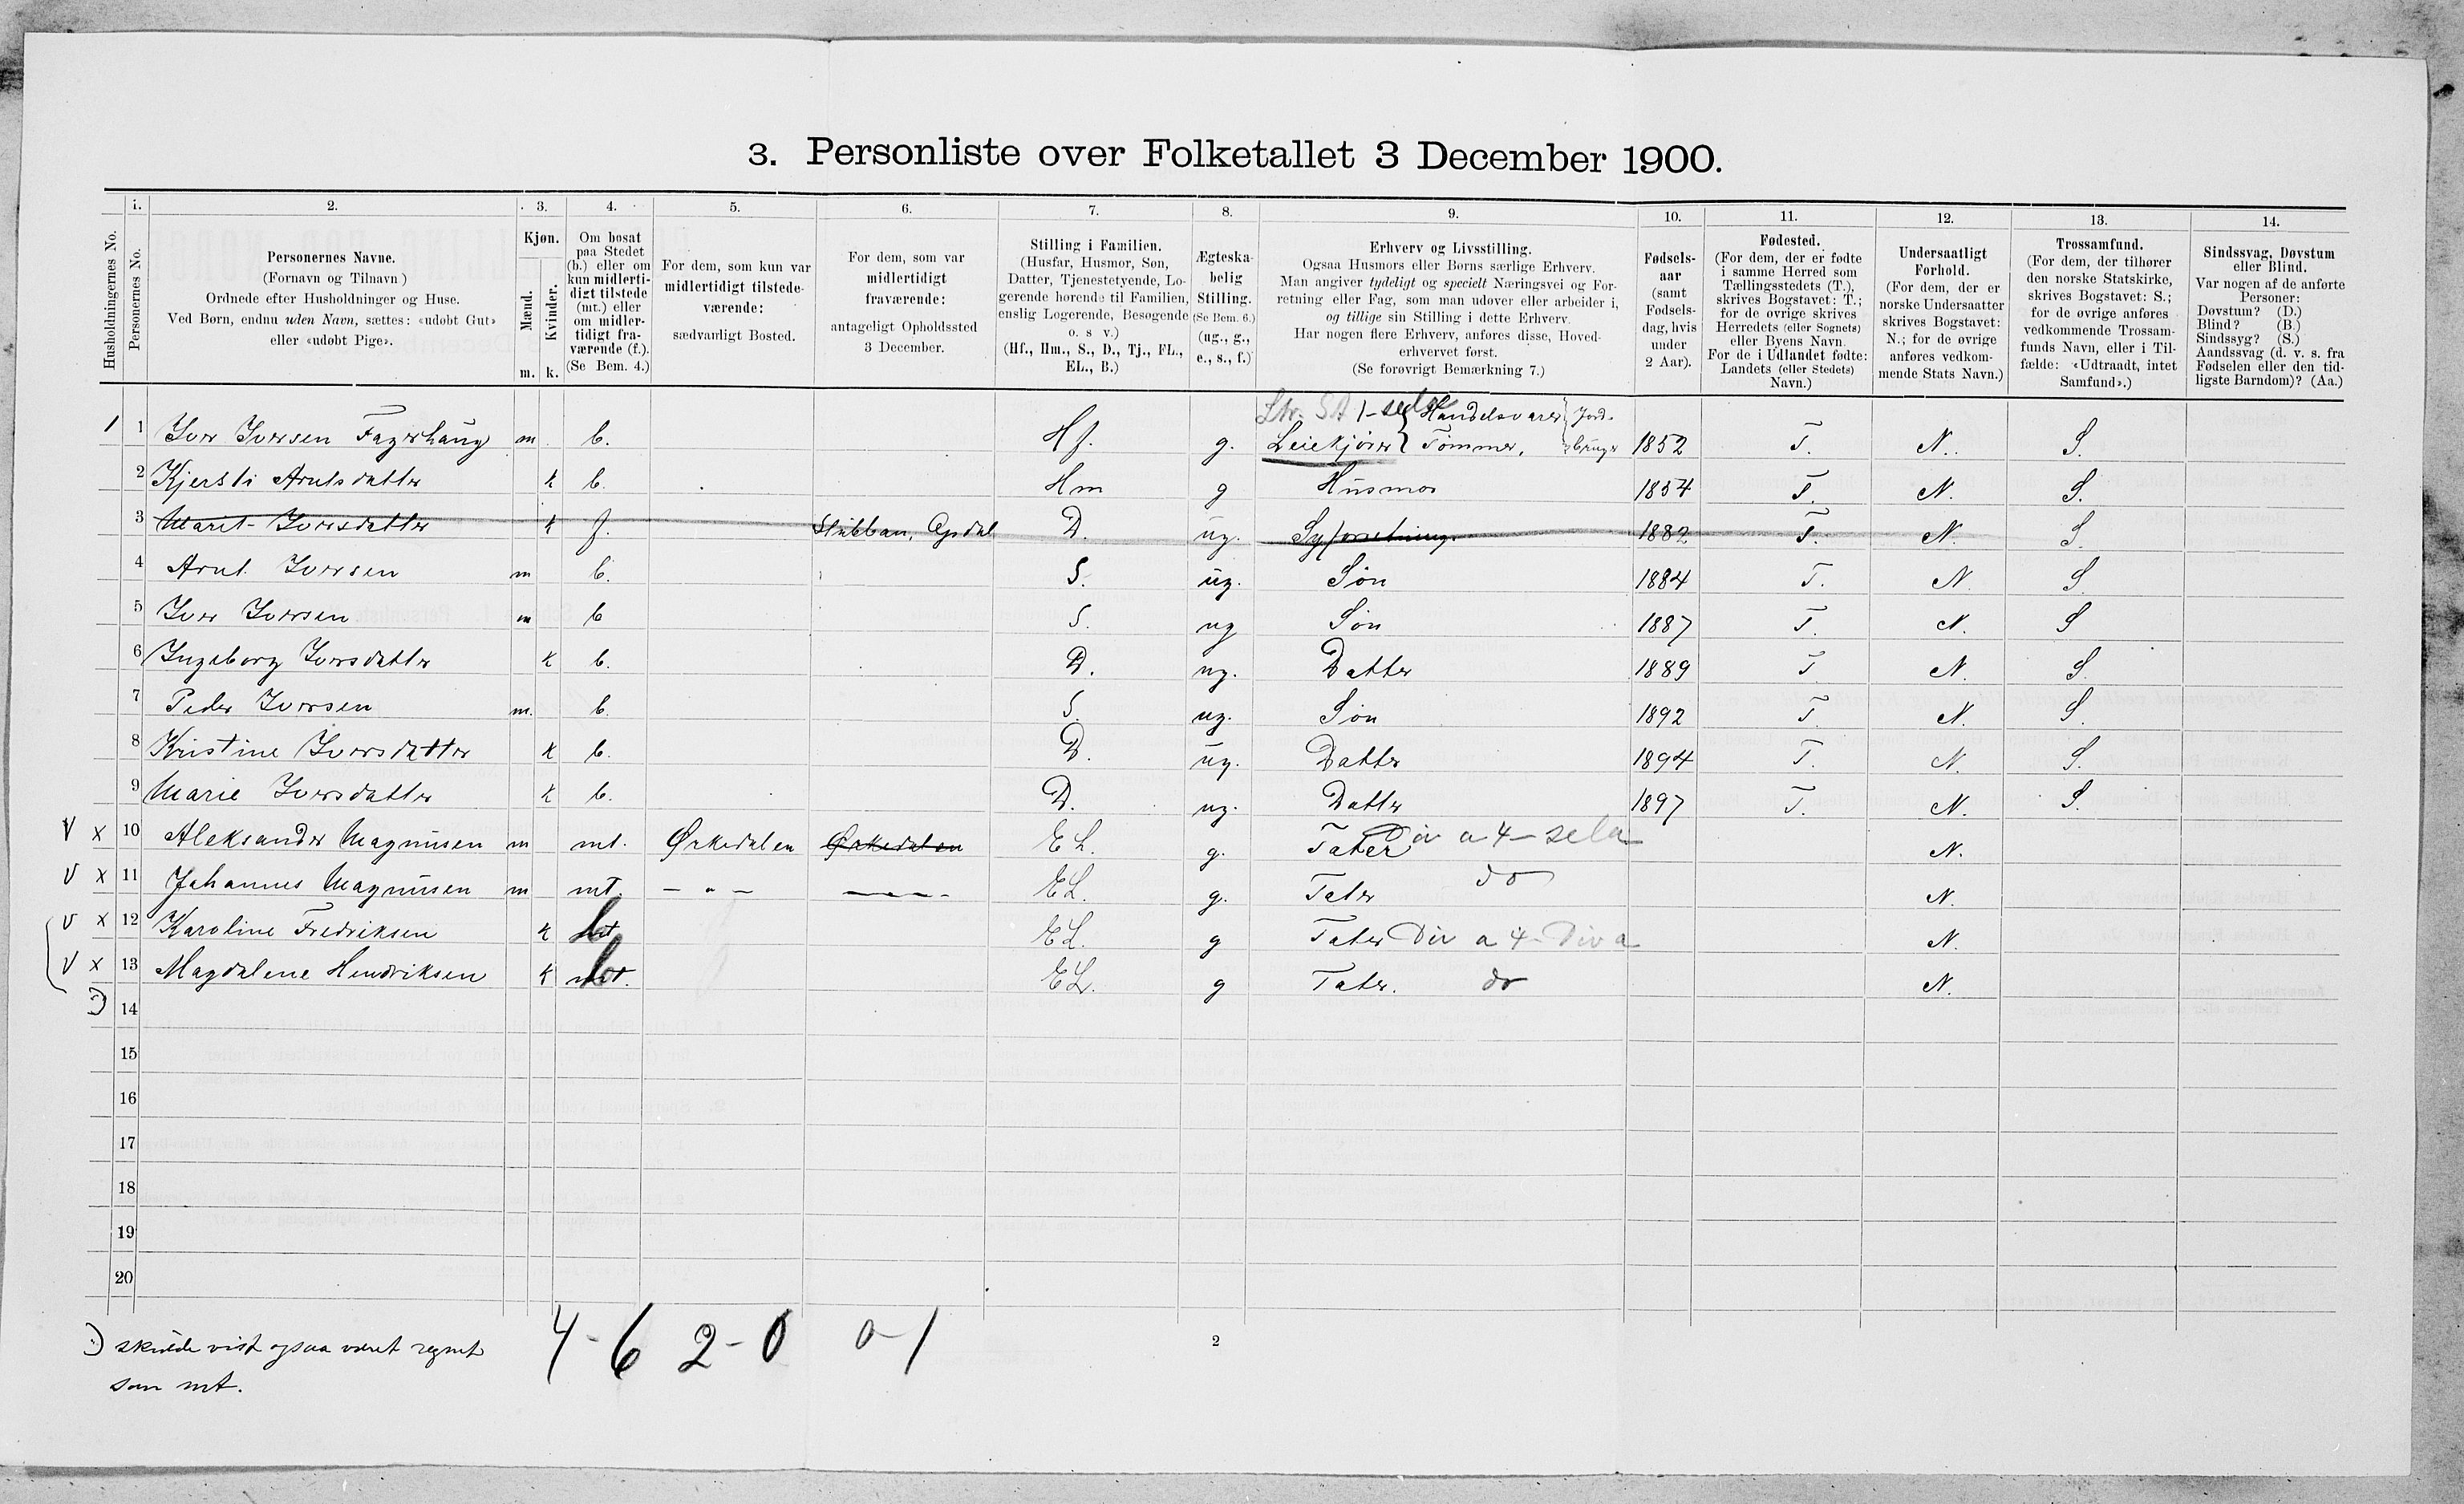 3. Personliste over Folketallet 3 December 1900.
1. 2. 3. 4. 5. 6. 7. 8. 9. 10. 11. 12. 13. 14.
Husholdningernes No.
Personernes No.
Personernes Navne.
(Fornavn og Tilnavn)
Ordnede efter Husholdninger og Huse.
Ved Børn, endnu uden Navn, sættes: «udøbt Gut»
eller «udøbt Pige».
Kjøn.
Mænd.
Kvinder.
m. k.
Om bosat
paa Stedet
(b.) eller om
kun midlerti-
digt tilstede
(mt.) eller
om midler-
tidigt fra-
værende (f.).
(Se Bem. 4.)
For dem, som kun var
midlertidigt tilstede-
værende:
sædvanligt Bosted.
For dem, som var
midlertidigt
fraværende:
antageligt Opholdssted
3 December.
Stilling i Familien.
(Husfar, Husmor, Søn,
Datter, Tjenestetyende, Lo-
gerende hørende til Familien,
enslig Logerende, Besøgende
o. s. v.)
(Hf., Hm., S., D., Tj., FL.,
EL., B.)
Ægteska-
belig
Stilling.
(Se Bem. 6.)
(ug., g.,
e., s., f.)
Erhverv og Livsstilling.
Ogsaa Husmors eller Børns særlige Erhverv.
Man angiver tydeligt og specielt Næringsvei og For-
retning eller Fag, som man udøver eller arbeider i,
og tillige sin Stilling i dette Erhverv.
Har nogen flere Erhverv, anføres disse, Hoved-
erhvervet først.
(Se forøvrigt Bemærkning 7.)
Fødsels-
aar
(samt
Fødsels-
dag, hvis
under
2 Aar).
Fødested.
(For dem, der er fødte
i samme Herred som
Tællingsstedets (T.),
skrives Bogstavet: T.;
for de øvrige skrives
Herredets (eller Sognets)
eller Byens Navn.
For de i Udlandet fødte:
Landets (eller Stedets)
Navn.)
Undersaatligt
Forhold.
(For dem, der er
norske Undersaatter
skrives Bogstavet:
N.; for de øvrige
anføres vedkom-
mende Stats Navn.)
Trossamfund.
(For dem, der tilhører
den norske Statskirke,
skrives Bogstavet: S.;
for de øvrige anføres
vedkommende Trossam-
funds Navn, eller i Til-
fælde: «Udtraadt, intet
Samfund».)
Sindssvag, Døvstum
eller Blind.
Var nogen af de anførte
Personer:
Døvstum? (D.)
Blind? (B.)
Sindssyg? (S.)
Aandssvag (d. v. s. fra
Fødselen eller den tid-
ligste Barndom)? (Aa.)
Handelsvarer Jord-
1 1 Iver Iversen Fagerhaug m b. Hf. g. Leiekjører Tømmer, bruger 1852 T. N. S.
2 Kjersti Arntsdatter k b. Hm g Husmor 1854 T. N. S.
3 Marit Iversdatter k f. Stubban, Opdal D. ug. Syforretning 1882 T. N. S.
4 Arnt Iversen m b. S. ug. Søn 1884 T. N. S
5 Iver Iversen m b S. ug Søn 1887 T. N. S
6 Ingeborg Iversdatter k b. D. ug. Datter 1889 T N. S
7 Peder Iversen m. b. S. ug. Søn 1892 T N. S.
8 Kristine Iversdatter k b. D. ug. Datter 1894 T. N. S.
9 Marie Iversdatter k b. D. ug. Datter 1897 T. N. S.
V x 10 Aleksander Magnusen m mt. Ørkedalen Ørkedalen EL. g. Tater N.
V x 11 Johannes Magnusen m mt. - " - EL. g. Tater do N.
V x 12 Karoline Fredriksen k EL. g Tater Div a 4 - Div a N.
V x 13 Magdalene Hendriksen k EL. g Tater. do N.
14
15
16
17
18
19
20
4-6 2-0 0-1
2
skulde vist ogsaa været regnet
som mt.